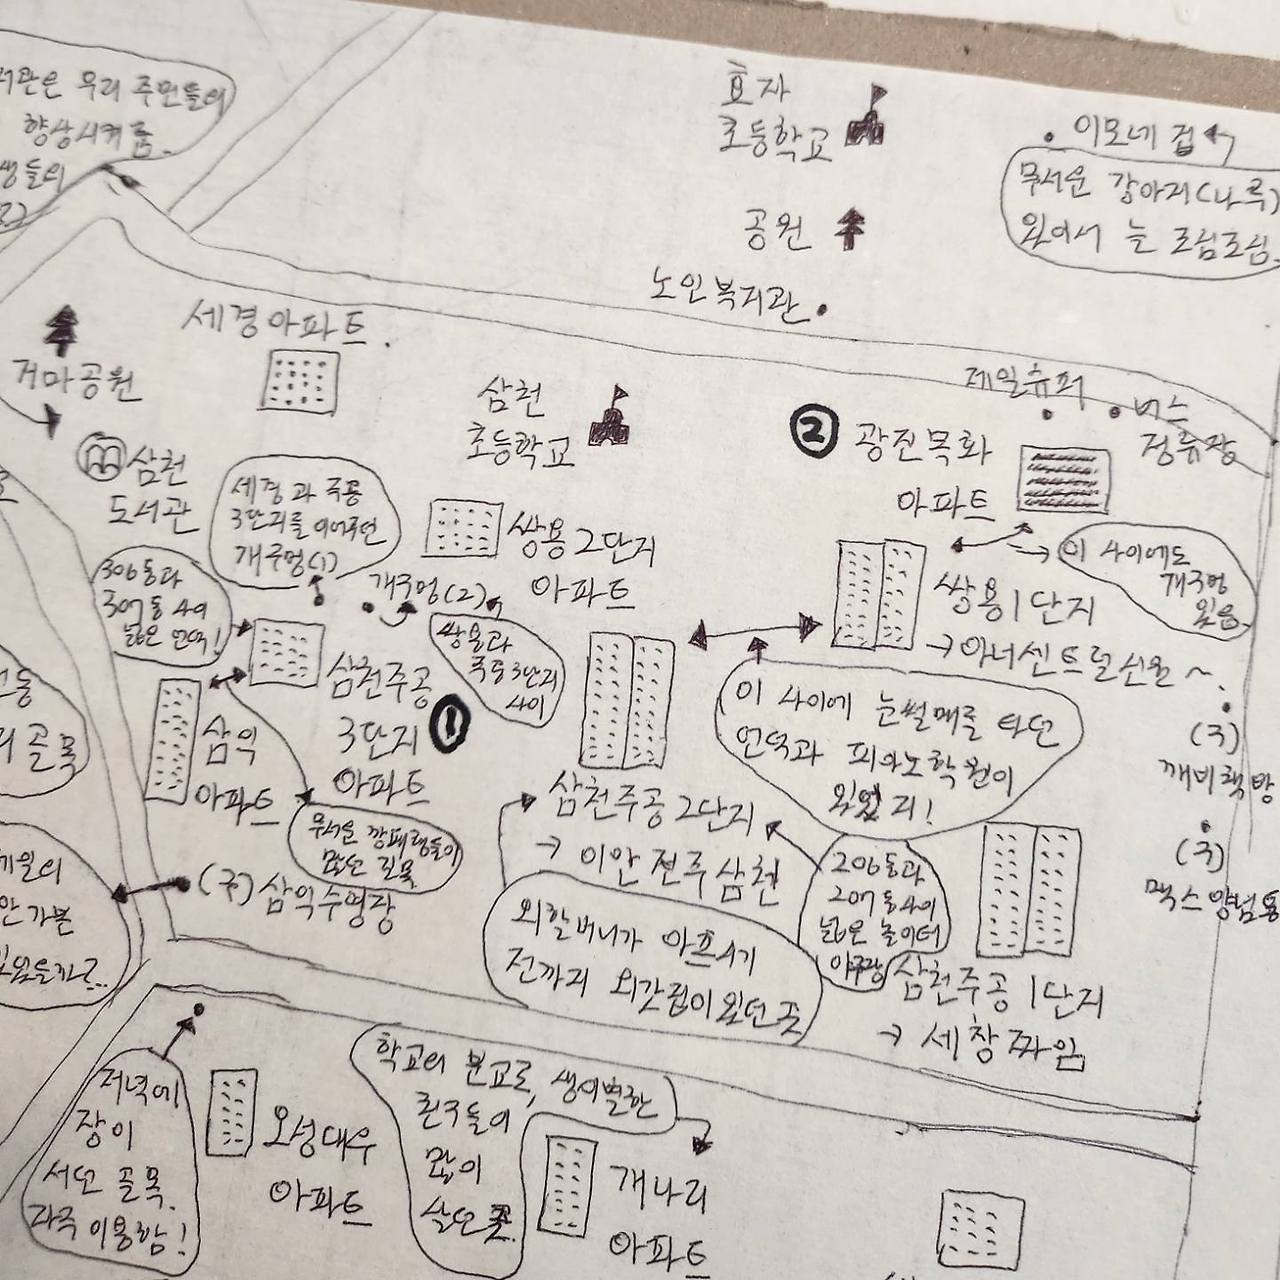 우리 주민들의
향상시켜줌.
생들의
효자
초등학교
이모네 집
무서운 강아지(나루)
있어서 늘 조심조심.
공원
노인복지관
세경아파트
거마공원
삼천
초등학교
제일슈퍼
버스
정류장
②
광진목화
아파트
삼천
도서관
세경과 주공
3단지를 이어주던
개구멍(1)
쌍용2단지
아파트
이 사이에도
개구멍
있음
306동과
307동 사이
넓은 언덕!
개구멍(2)
쌍용과
주공3단지
사이
쌍용1단지
→아너센트럴신원~
삼천주공
3단지
아파트
①
삼익
아파트
이 사이에 눈썰매를 타던
언덕과 피아노학원이
있었지!
(구)
깨비책방
골목
삼천주공2단지
→ 이안 전주삼천
무서운 깡패랭들이
많던 길목
(구)삼익수영장
206동과
207동사이
넓은 놀이터
야구장
(구)
맥스양념통
안가본
외할머니가 아프시기
전까지 외갓집이 있던 곳
삼천주공1단지
→ 세창짜임
저녁에
장이
서던 골목.
자주 이용함!
오성대우
아파트
학교의 분교로, 생이별한
친구들이
많이
살던 곳.
개나리
아파트